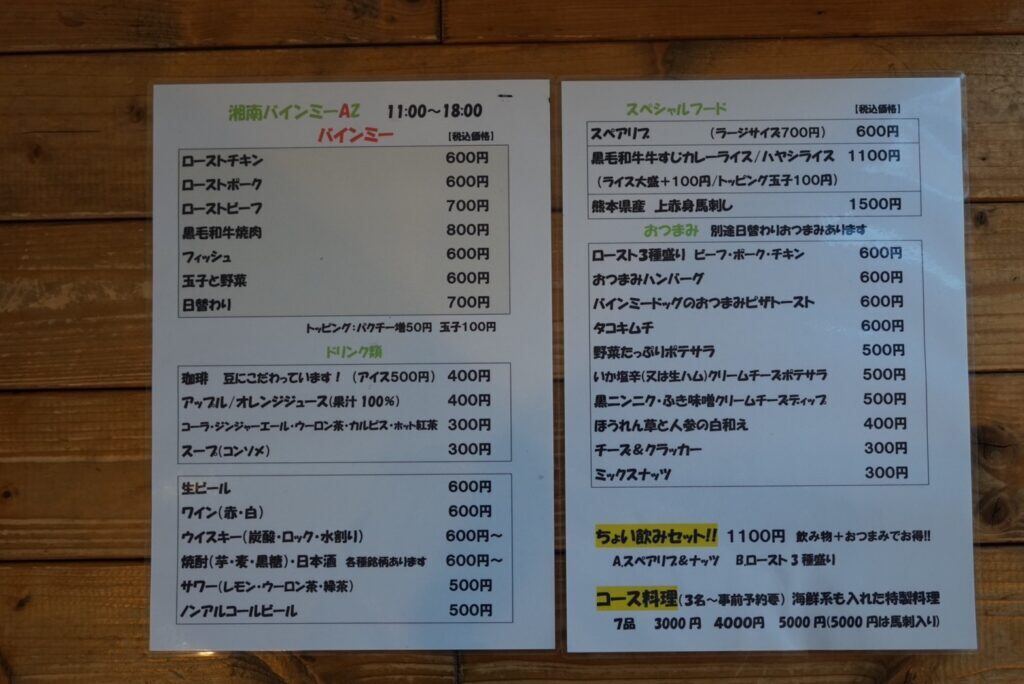 湘南バインミーAZ 11:00〜18:00
バインミー 【税込価格】
ローストチキン 600円
ローストポーク 600円
ローストビーフ 700円
黒毛和牛焼肉 800円
フィッシュ 600円
玉子と野菜 600円
日替わり 700円
トッピング:パクチー増50円 玉子100円
ドリンク類
珈琲 豆にこだわっています! (アイス500円) 400円
アップル/オレンジジュース(果汁100%) 400円
コーラ・ジンジャーエール・ウーロン茶・カルピス・ホット紅茶 300円
スープ(コンソメ) 300円
生ビール 600円
ワイン(赤・白) 600円
ウイスキー(炭酸・ロック・水割り) 600円〜
焼酎(芋・麦・黒糖)・日本酒 各種銘柄あります 600円〜
サワー(レモン・ウーロン茶・緑茶) 500円
ノンアルコールビール 500円
スペシャルフード 【税込価格】
スペアリブ (ラージサイズ700円) 600円
黒毛和牛牛すじカレーライス/ハヤシライス 1100円
(ライス大盛+100円/トッピング玉子100円)
熊本県産 上赤身馬刺し 1500円
おつまみ 別途日替わりおつまみあります
ロースト3種盛り ビーフ・ポーク・チキン 600円
おつまみハンバーグ 600円
バインミードッグのおつまみピザトースト 600円
タコキムチ 600円
野菜たっぷりポテサラ 500円
いか塩辛(又は生ハム)クリームチーズポテサラ 500円
黒ニンニク・ふき味噌クリームチーズディップ 500円
ほうれん草と人参の白和え 400円
チーズ&クラッカー 300円
ミックスナッツ 300円
ちょい飲みセット!! 1100円 飲み物+おつまみでお得!!
A.スペアリブ&ナッツ B.ロースト3種盛り
コース料理(3名〜事前予約要) 海鮮系も入れた特製料理
7品 3000円 4000円 5000円(5000円は馬刺入り)